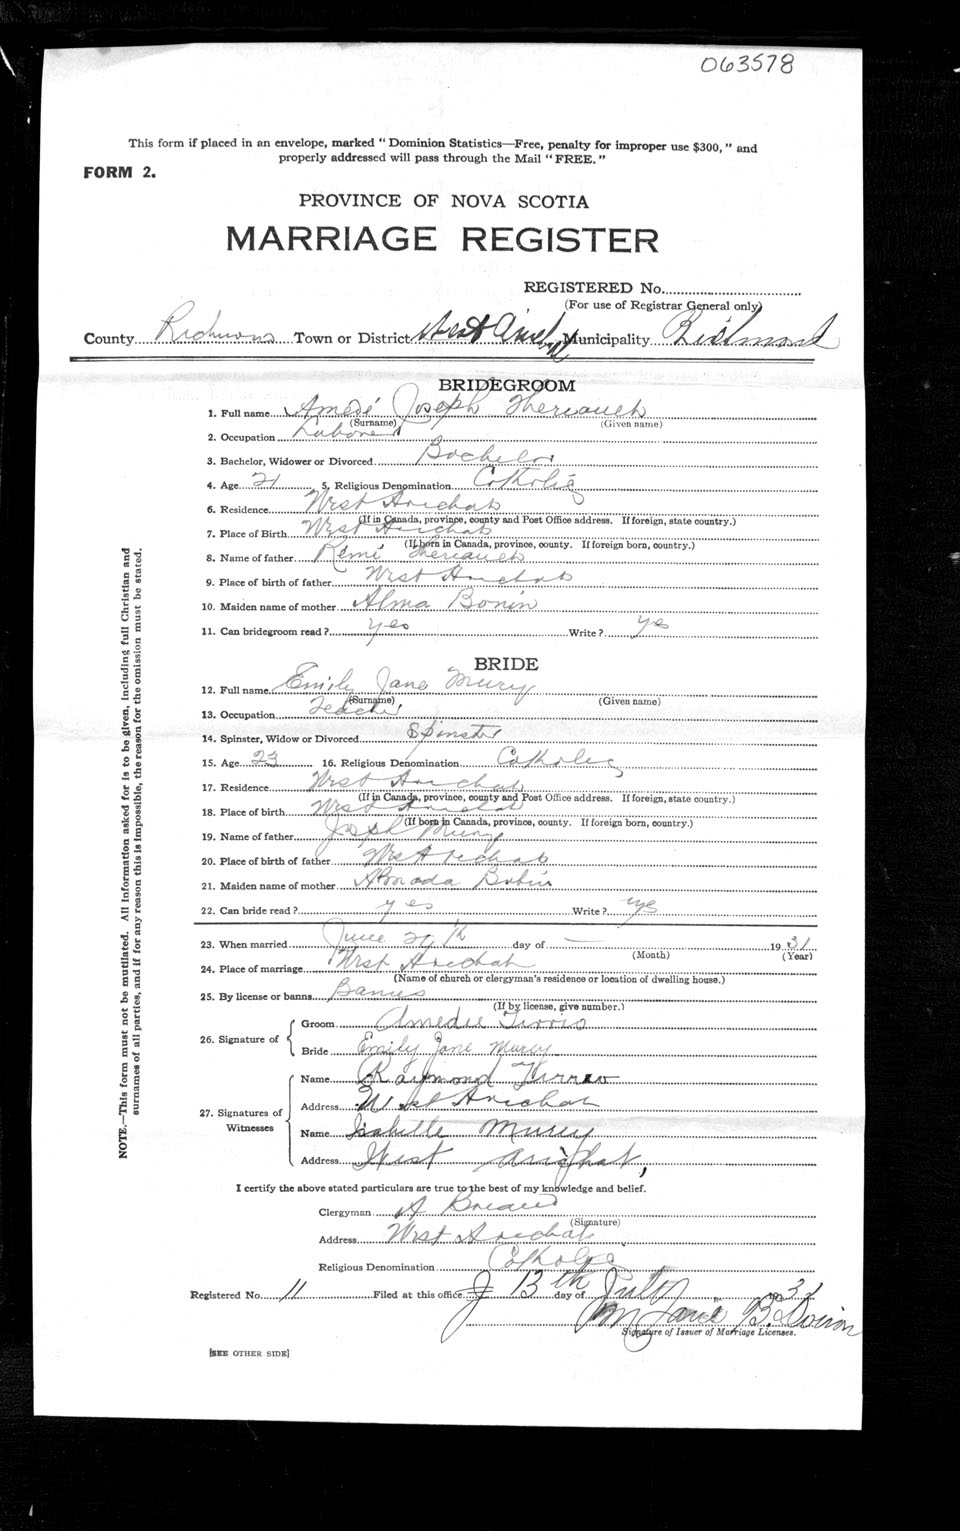 063578
This form if placed in an envelope, marked "Dominion Statistics—Free, penalty for improper use $300," and
properly addressed will pass through the Mail "FREE."
FORM 2.
PROVINCE OF NOVA SCOTIA
MARRIAGE REGISTER
REGISTERED No.
(For use of Registrar General only)
County Richmond Town or District West Arichat Municipality Richmond
BRIDEGROOM
1. Full name Amedé Joseph Theriault
(Surname) (Given name)
2. Occupation Laborer
3. Bachelor, Widower or Divorced Bachelor
4. Age 21 5. Religious Denomination Catholic
6. Residence West Arichat
(If in Canada, province, county and Post Office address. If foreign, state country.)
7. Place of Birth West Arichat
(If born in Canada, province, county. If foreign born, country.)
8. Name of father Rémi Theriault
9. Place of birth of father West Arichat
10. Maiden name of mother Alma Bonin
11. Can bridegroom read? yes Write? yes
BRIDE
12. Full name Emily Jane Mury
(Surname) (Given name)
13. Occupation Teacher
14. Spinster, Widow or Divorced Spinster
15. Age 23 16. Religious Denomination Catholic
17. Residence West Arichat
(If in Canada, province, county and Post Office address. If foreign, state country.)
18. Place of birth West Arichat
(If born in Canada, province, county. If foreign born, country.)
19. Name of father Joseph Mury
20. Place of birth of father West Arichat
21. Maiden name of mother
22. Can bride read? yes Write? yes
23. When married June 29th day of — 1931
(Month) (Year)
24. Place of marriage West Arichat
(Name of church or clergyman's residence or location of dwelling house.)
25. By license or banns Banns
(If by license, give number.)
26. Signature of
Groom Amedee
Bride Emily Jane Murcy
27. Signatures of Witnesses
Name Raymond
Address West Arichat
Name Isabelle Mury
Address West Arichat,
I certify the above stated particulars are true to the best of my knowledge and belief.
Clergyman A Briand
(Signature)
Address West Arichat
Religious Denomination Catholic
Registered No. 11 Filed at this office 13th day of July 1931
B.
Signature of Issuer of Marriage Licenses.
[SEE OTHER SIDE]
NOTE.—This form must not be mutilated. All information asked for is to be given, including full Christian and
surnames of all parties, and if for any reason this is impossible, the reason for the omission must be stated.